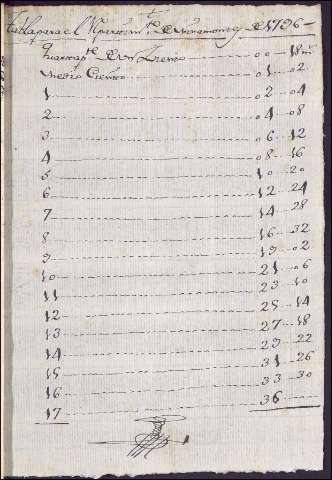 Tabla para el Repartim.to de de 1796
Quarta p.te de un 00 18
Medio 01 02
1 02 04
2 04 08
3 06 12
4 08 16
5 10 20
6 12 24
7 14 28
8 16 32
9 19 02
10 21 06
11 23 10
12 25 14
13 27 18
14 29 22
15 31 26
16 33 30
17 36